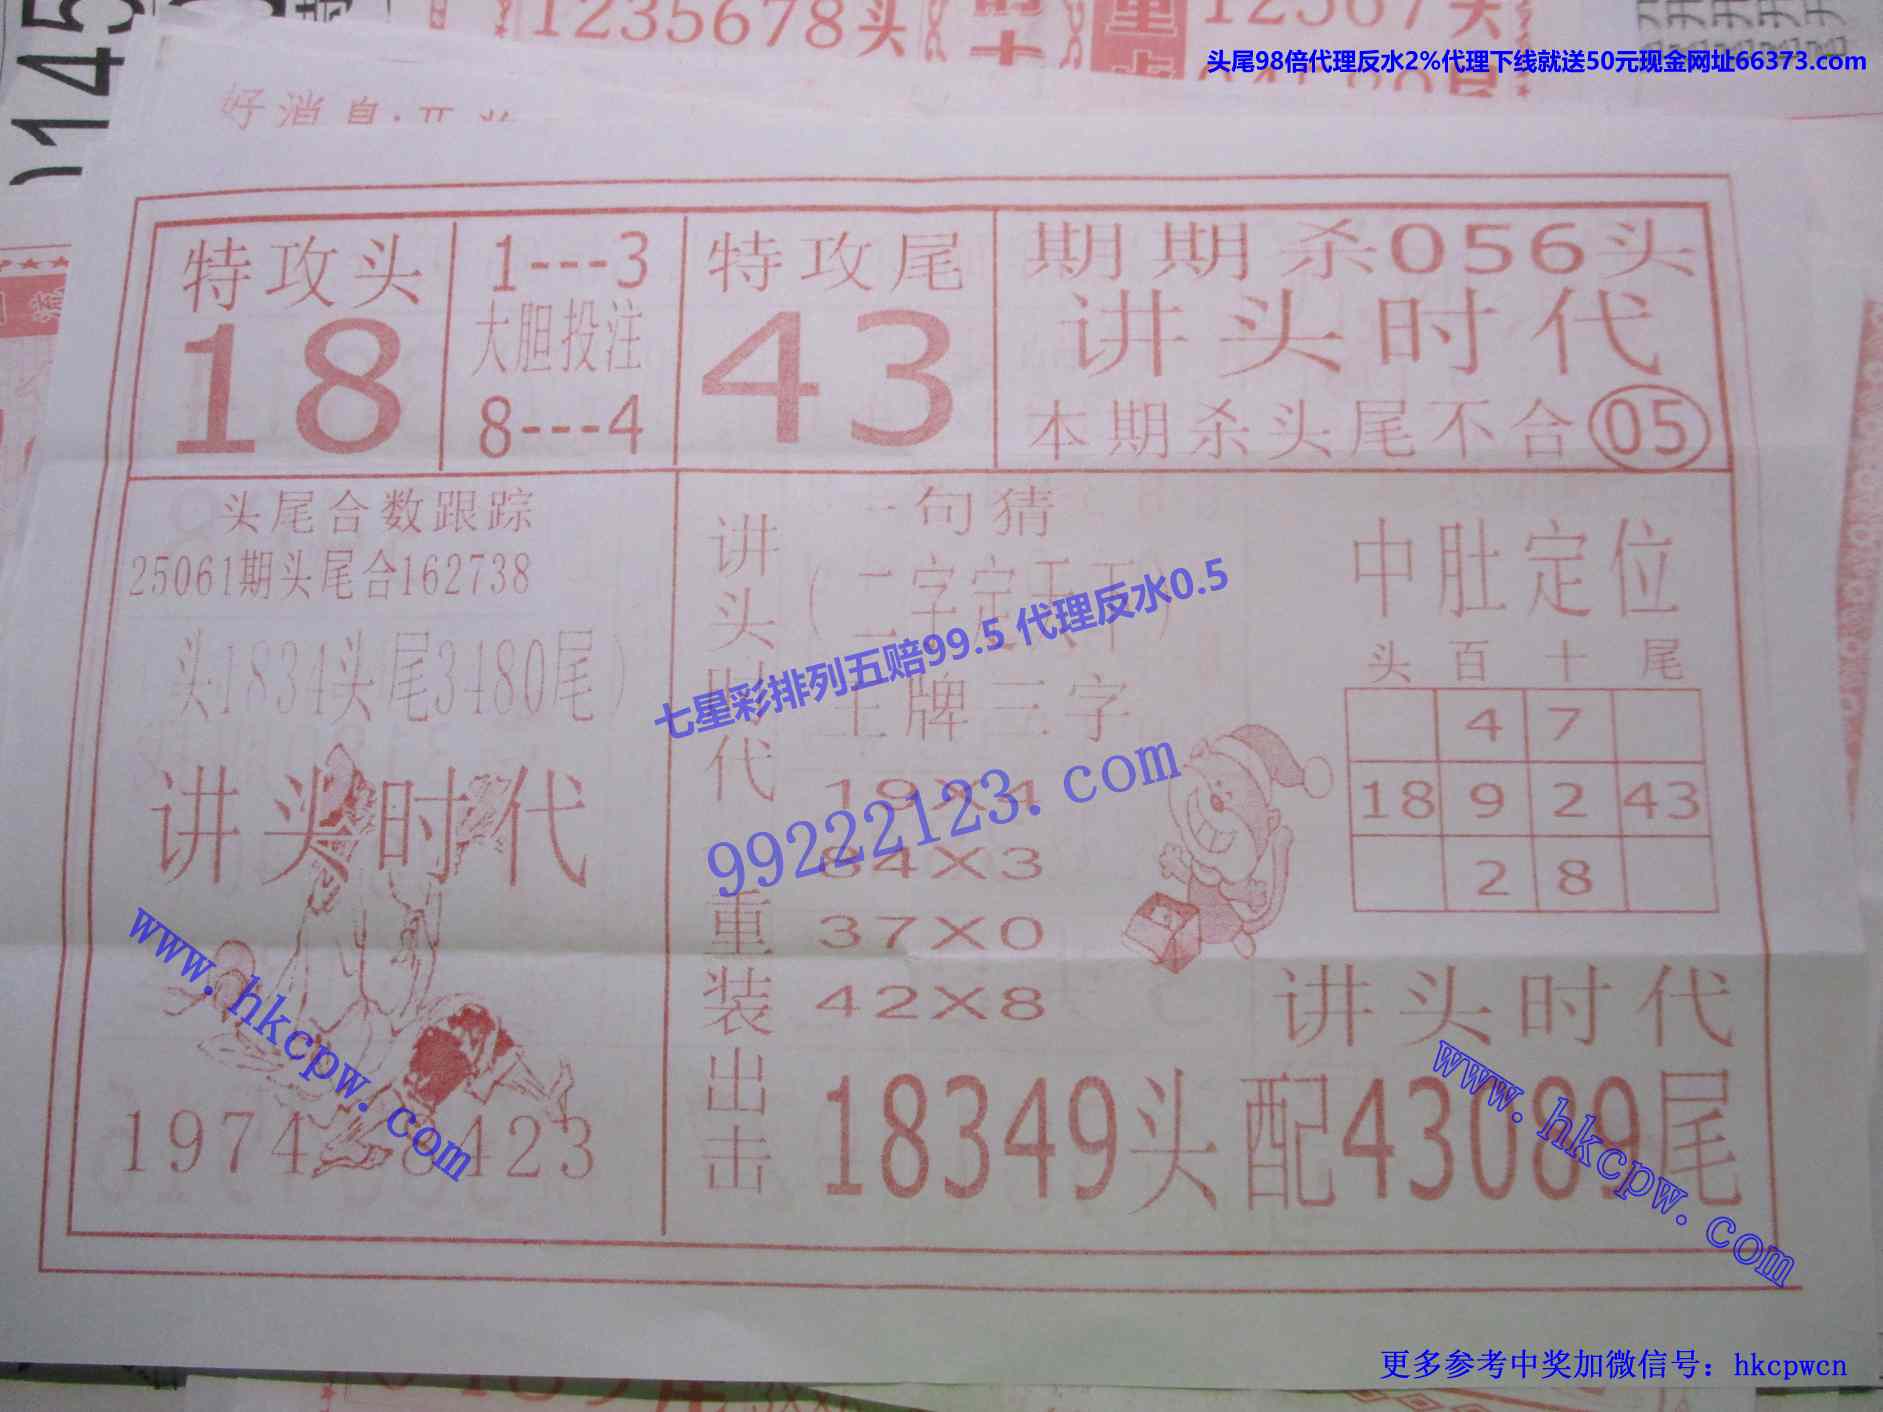 1235678头
12567头
头尾98倍代理反水2%代理下线就送50元现金网址66373.com
145
好消息:开
特攻头
18
1---3
大胆投注
8---4
特攻尾
43
期期杀056头
讲头时代
本期杀头尾不合05
头尾合数跟踪
25061期头尾合162738
头1834头尾3480尾)
讲头时代
1974
8423
讲头时代重装出击
一句猜
(二字定天下)
王牌三字
19X4
84X3
37X0
42X8
中肚定位
头 百 十 尾
4 7
18 9 2 43
2 8
讲头时代
18349头配43089尾
七星彩排列五赔99.5 代理反水0.5
99222123.com
www.hkcpw.com
www.hkcpw.com
更多参考中奖加微信号：hkcpwcn